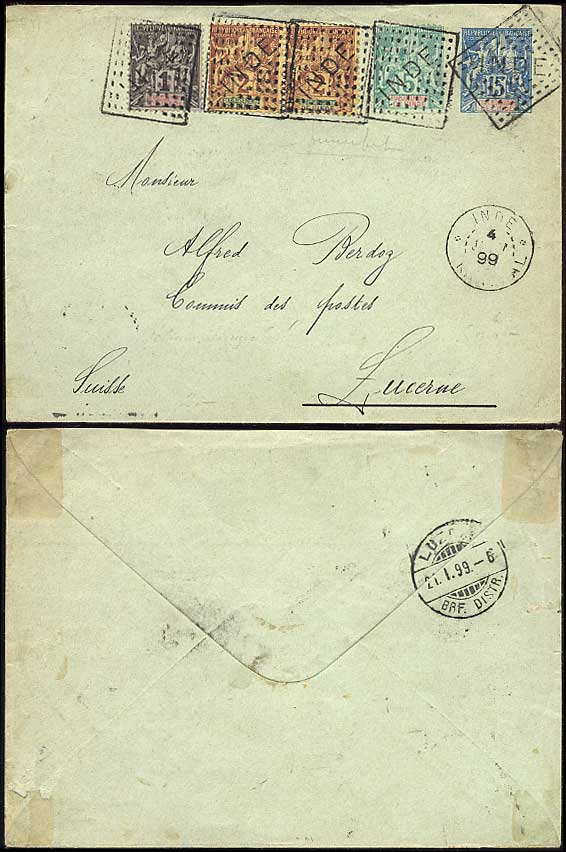 REPUBLIQUE FRANÇAISE
1 2 2 5 15
INDE INDE INDE INDE
Monsieur
Alfred Berdoz
Commis des postes
Lucerne
Suisse
INDE
4
99
21.I.99.–6
BRF. DISTR.